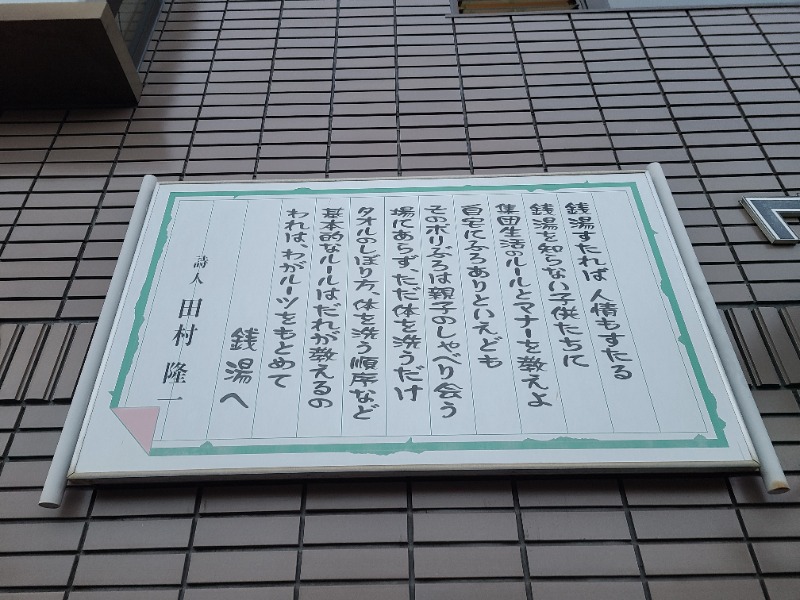 銭湯すたれば 人情もすたる
銭湯を知らない子供たちに
集団生活のルールとマナーを教えよ
自宅にふろありといえども
そのポリぶろは親子のしゃべり会う
場にあらず、ただ体を洗うだけ
タオルのしぼり方、体を洗う順序など
基本的なルールはだれが教えるの
われは、わがルーツをもとめて
銭湯へ
詩人 田村 隆一